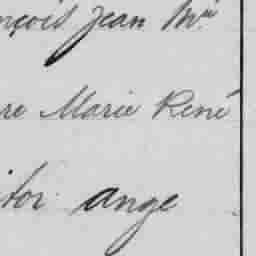 nçois Jean Mie
re Marie René
tor ange